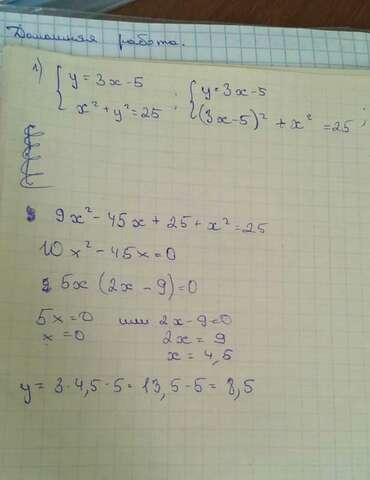 Домашняя работа.
1) { y = 3x - 5 ; { y = 3x - 5
x² + y² = 25 (3x - 5)² + x² = 25 ;
9x² - 45x + 25 + x² = 25
10x² - 45x = 0
5x (2x - 9) = 0
5x = 0 или 2x - 9 = 0
x = 0 2x = 9
x = 4,5
y = 3 · 4,5 - 5 = 13,5 - 5 = 8,5